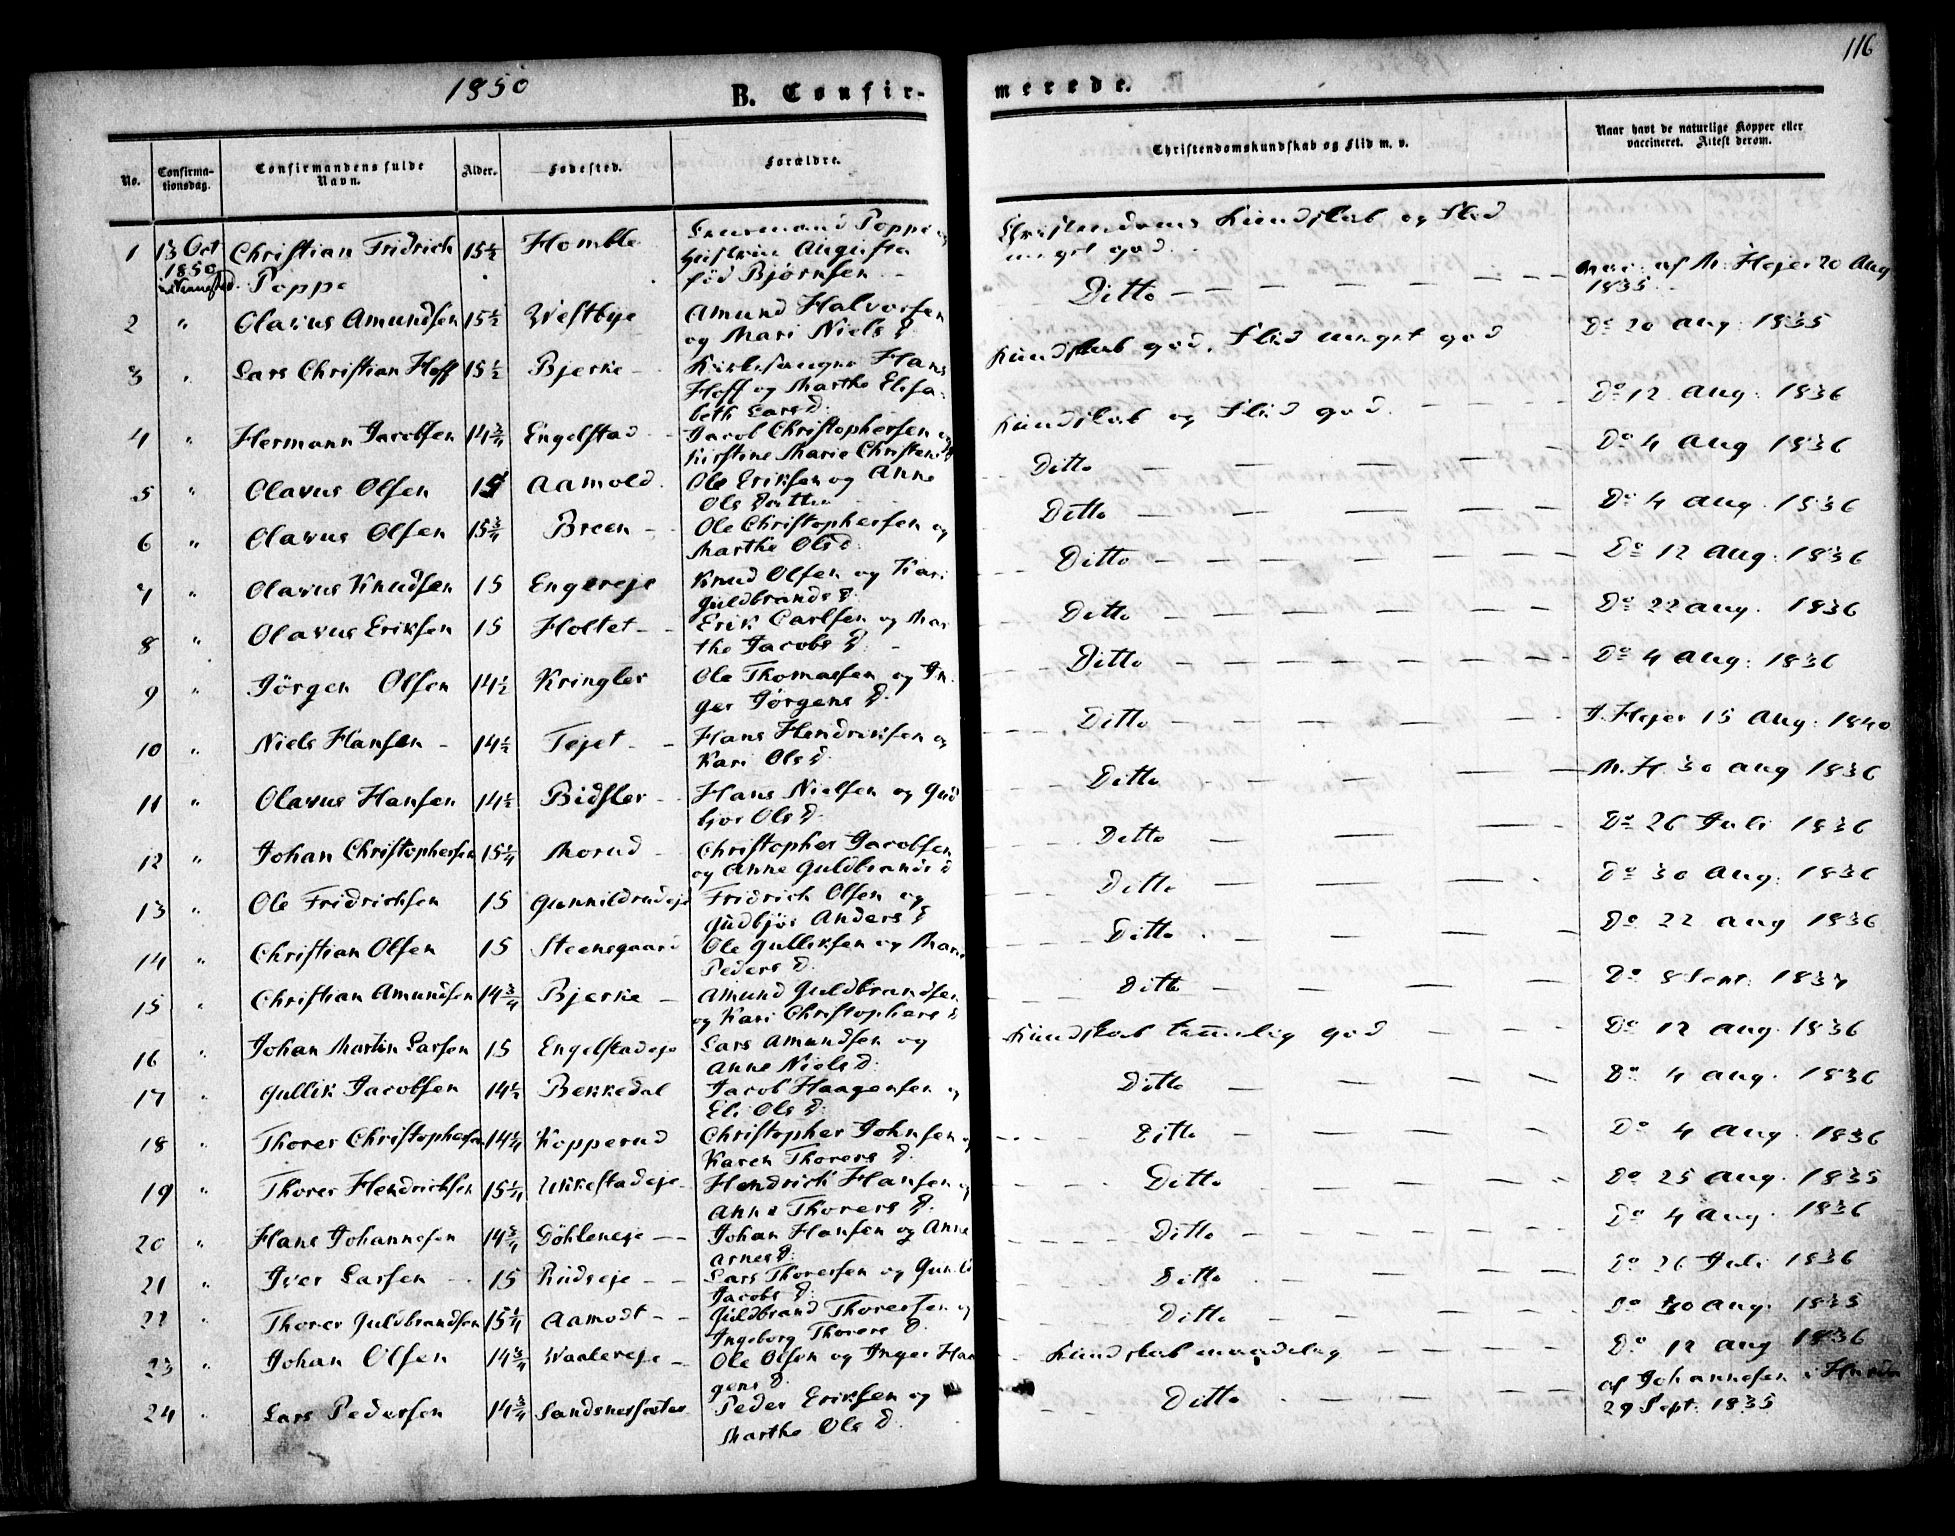 116
1850
B. Confir-
merede.
No.
Confirma-
tionsdag.
Confirmandens fulde
Navn.
Alder.
Fødested.
Forældre.
Christendomskundskab og Flid m. v.
Naar havt de naturlige Kopper eller
vaccineret. Attest derom.
1 13 Oct Christian Fridrich 15½ Homble Poppe og
1850 Poppe Augusta
fød Bjørnsen
Christendoms Kundskab og Flid
meget god.
vac: af M. Hejer 20 Aug
1835
2 " Olavus Amundsen 15½ Westbye Amund Halvorsen
og Mari Niels D.
Ditto Do 20 Aug: 1835
3 " Lars Christian Hoff 15½ Bjerke Kirkesanger Hans
Hoff og Marthe Elisa-
beth Lars D:
Kundskab god, Flid meget god
Do 12 Aug: 1836
4 " Hermann Jacobsen 14¾ Engelstad Jacob Christophersen og
Kirstine Marie Christens D
Kundskab og Flid god.
Do 4 Aug 1836
5 " Olavus Olsen 15 Aamold Ole Eriksen og Anne
Ols Datter
Ditto Do 4 Aug. 1836
6 " Olavus Olsen 15¾ Breen Ole Christophersen og
Marthe Ols D:
Ditto Do 12 Aug: 1836
7 " Olavus Knudsen 15 Engereje Knud Olsen og Kari
Guldbrands D.
Ditto Do 22 Aug. 1836
8 " Olavus Eriksen 15 Holtet Erik Carlsen og Mar
the Jacobs D.
Ditto Do 4 Aug: 1836
9 " Jörgen Olsen 14½ Kringler Ole Thomassen og In
ger Jörgens D.
Ditto J. Hejer 15 Aug: 1840
10 " Niels Hansen 14½ Tejet Hans Hendriksen og
Kari Ols D.
Ditto M. H. 30 Aug 1836
11 " Olavus Hansen 14½ Bidsler Hans Nielsen og Gud
bjør Ols D.
Ditto Do 26 Juli 1836
12 " Johan Christophersen 15¼ Morud Christopher Jacobsen
og Anne Guldbrands D
Ditto Do 30 Aug: 1836
13 " Ole Fridrichsen 15 Gunnildrudeje Fridrich Olsen og
Gudbjør Anders D
Ditto Do 22 Aug 1836
14 " Christian Olsen 15 Steensgaard Ole Gulliksen og Mari
Peders D.
Ditto Do 8 Sept: 1837
15 " Christian Amundsen 14¾ Bjerke Amund Guldbrandsen
og Kari Christophers D
Kundskab temmelig god
Do 12 Aug. 1836
16 " Johan Martin Larsen 15 Engelstadeje Lars Amundsen og
Anne Niels D.
Ditto Do 4 Aug. 1836
17 " Gullik Jacobsen 14½ Bekkedal Jacob Haagensen og
Eli Ols D.
Ditto Do 4 Aug. 1836
18 " Thorer Christophersen 14¼ Kopperud Christopher Johnsen og
Karen Thorers D.
Ditto Do 25 Aug. 1835
19 " Thorer Hendrichsen 15¼ Ukkestadeje Hendrich Hansen og
Anne Thorers D.
Ditto Do 4 Aug. 1836
20 " Hans Johannesen 14¾ Göhleneje Johan Hansen og Anne
Arnes D.
Ditto Do 26 Juli 1836
21 " Iver Larsen 15 Rudseje Lars Thoresen og Gunild
Jacobs D.
Ditto Do 30 Aug. 1835
22 " Thorer Guldbrandsen 15¼ Aamodt Guldbrand Thorersen og
Ingeborg Thorers D.
Kundskab maadelig
Do 12 Aug 1836
23 " Johan Olsen 14¾ Waalereje Ole Olsen og Inger Haa
gens D.
Ditto af Johannesen i Hurdal
24 " Lars Pedersen 14¾ Sandsnessæter Peder Eriksen og
Marthe Ols D.
29 Sept. 1835